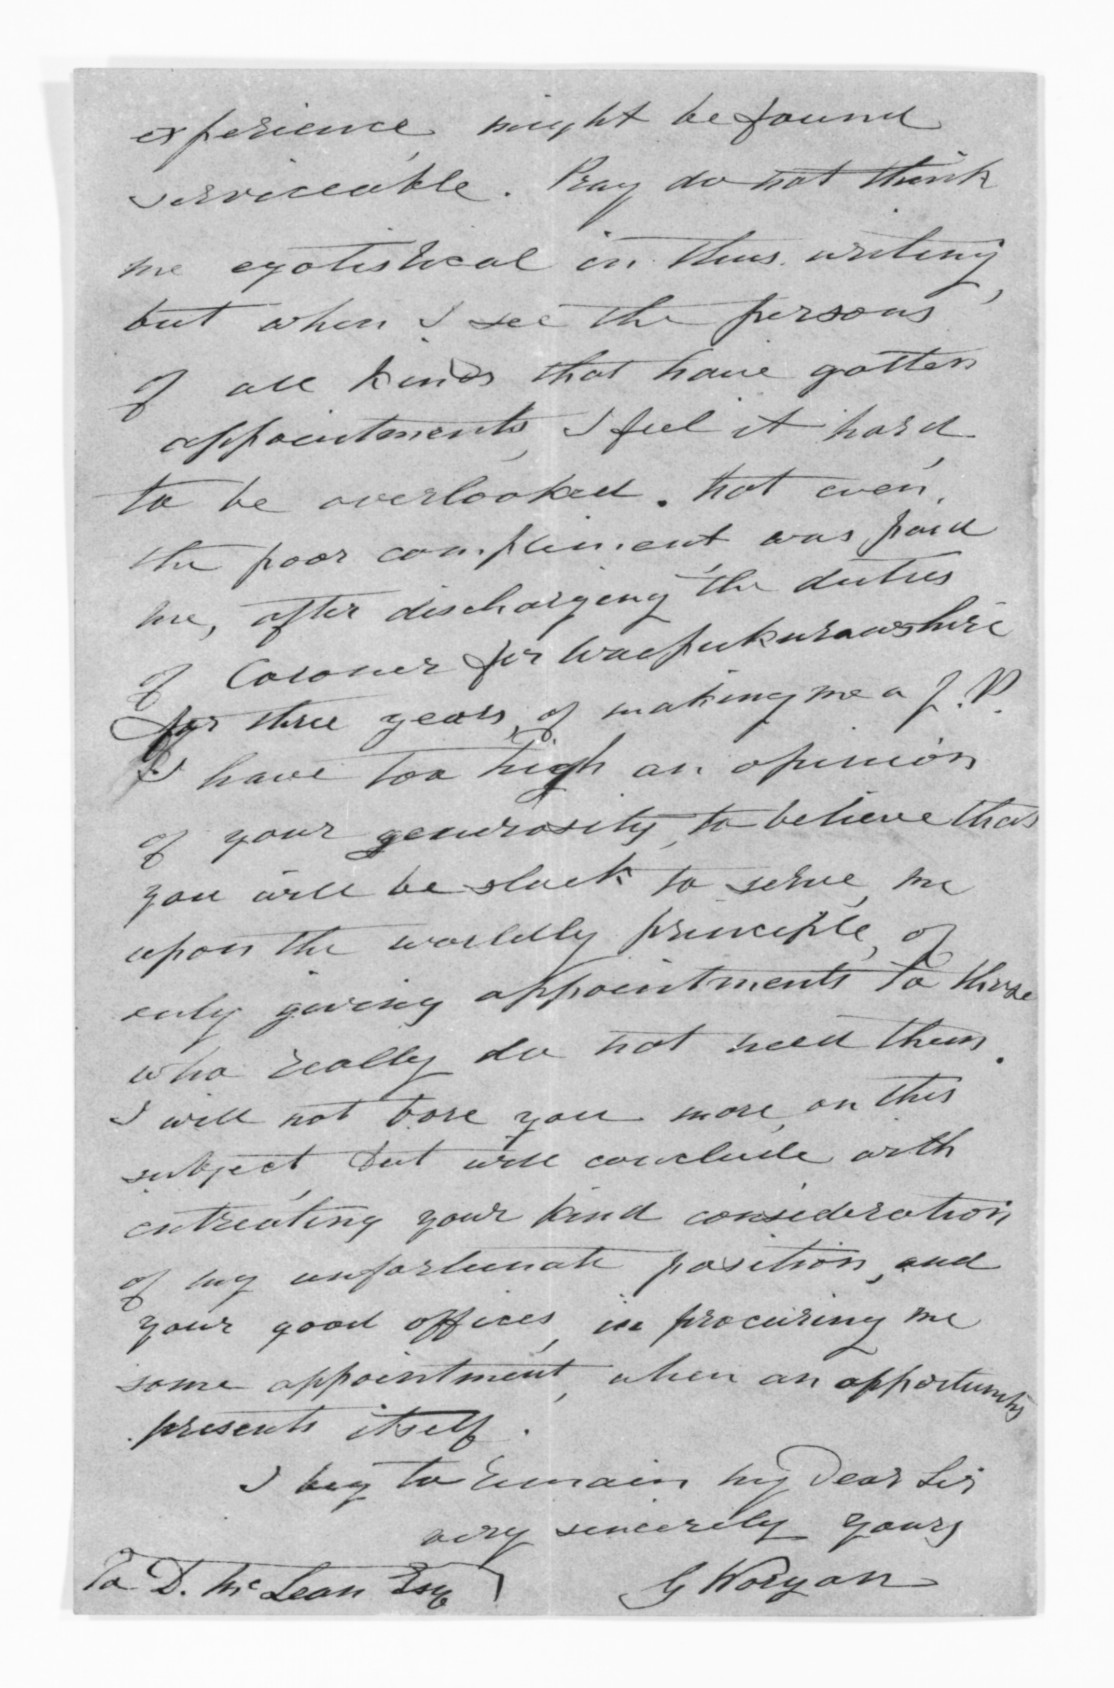 experience, might be found
serviceable. Pray do not think
me egotistical in thus writing,
but when I see the persons
of all kinds that have gotten
appointments, I feel it hard,
to be overlooked. Not even,
the poor compliment was paid
me, after discharging the duties
of Coroner for Waipukurau shire
for three years, of making me a J.P.
I have too high an opinion
of your generosity, to believe that
you will be slack to serve me
upon the worldly principle, of
only giving appointments to those
who really do not need them.
I will not bore you more, on this
subject, but will conclude with
entreating your kind consideration
of my unfortunate position, and
your good offices, in procuring me
some appointment, when an opportunity
presents itself.
I beg to remain my Dear Sir
very sincerely yours
To D. McLean Esq G Worgan